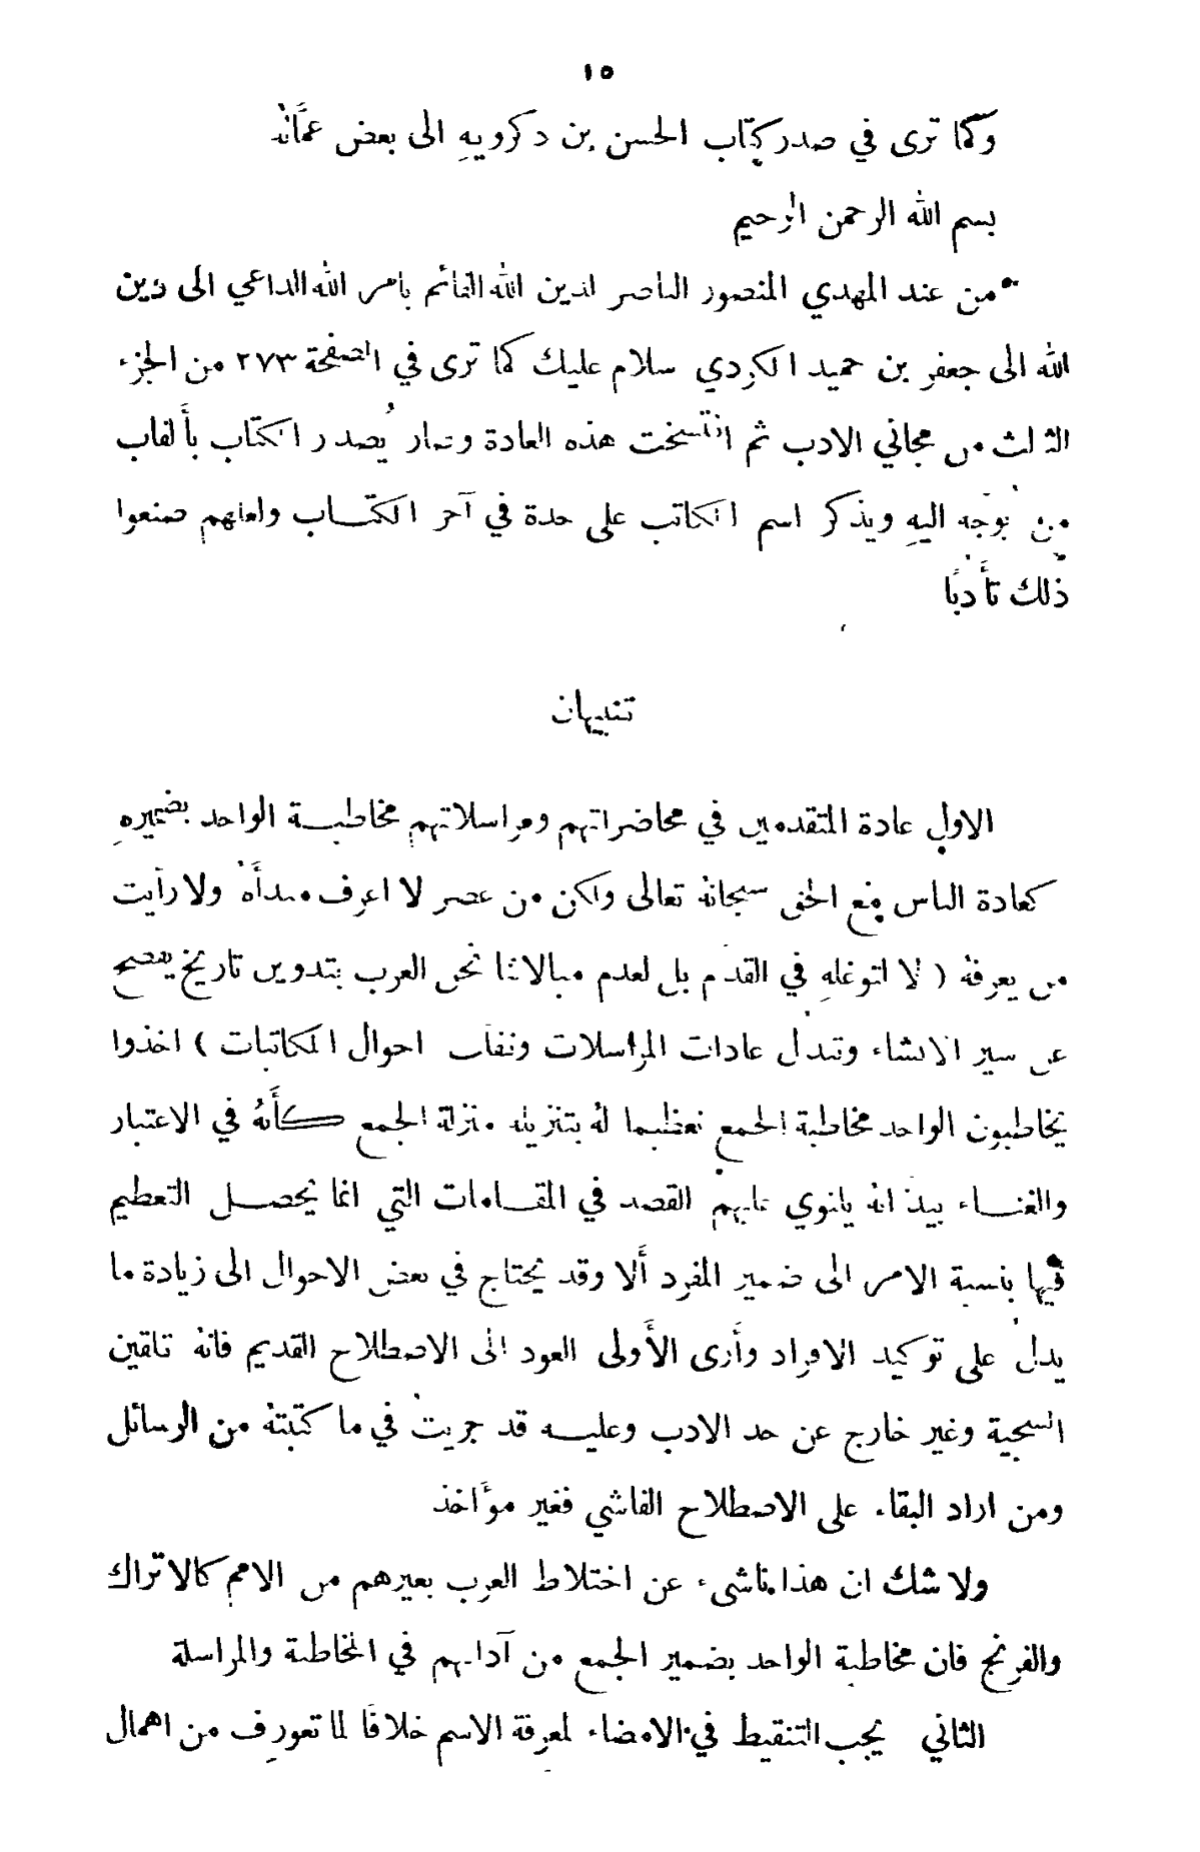 ١٥
وكما ترى في صدر كتاب الحسن بن ذكرويهِ الى بعض عمَّالهِ
بسم الله الرحمن الرحيم
من عند المهدي المنصور الناصر لدين الله القائم بامر الله الداعي الى دين
الله الى جعفر بن حميد الكردي سلام عليك كما ترى في الصفحة ٢٧٣ من الجزء
الثالث من مجاني الادب ثم انتسخت هذه العادة وصار يُصدر الكتاب بأَلقاب
من يوجَّه اليهِ ويذكر اسم الكاتب على حدة في آخر الكتاب ولعلهم صنعوا
ذلك تأَدبًا
تنبيهان
الاول عادة المتقدمين في محاضراتهم ومراسلاتهم مخاطبة الواحد بضميرهِ
كعادة الناس مع الحق سبحانهُ تعالى ولكن من عصر لا اعرف مبدأَهُ ولا رأيت
من يعرفهُ ( لا لتوغلهِ في القدم بل لعدم مبالاتنا نحن العرب بتدوين تاريخ يفصح
عن سير الانشاء وتبدل عادات المراسلات وتقلب احوال المكاتبات ) اخذوا
يخاطبون الواحد مخاطبة الجمع تعظيما لهُ بتنزيلهِ منزلة الجمع كأَنهُ في الاعتبار
والغناء بيد انهُ يلتوي عليهم القصد في المقامات التي انما يحصل التعظيم
فيها بنسبة الامر الى ضمير المفرد أَلا وقد يحتاج في بعض الاحوال الى زيادة ما
يدل على توكيد الافراد وأَرى الأَولى العود الى الاصطلاح القديم فانهُ تلقين
السجية وغير خارج عن حد الادب وعليهِ قد جريت في ما كتبتهُ من الرسائل
ومن اراد البقاء على الاصطلاح الفاشي فغير مؤَاخذ
ولا شك ان هذا ناشىء عن اختلاط العرب بغيرهم من الامم كالاتراك
والفرنج فان مخاطبة الواحد بضمير الجمع من آدابهم في المخاطبة والمراسلة
الثاني يجب التنقيط في الامضاء لمعرفة الاسم خلافًا لما تعورف من اهمال